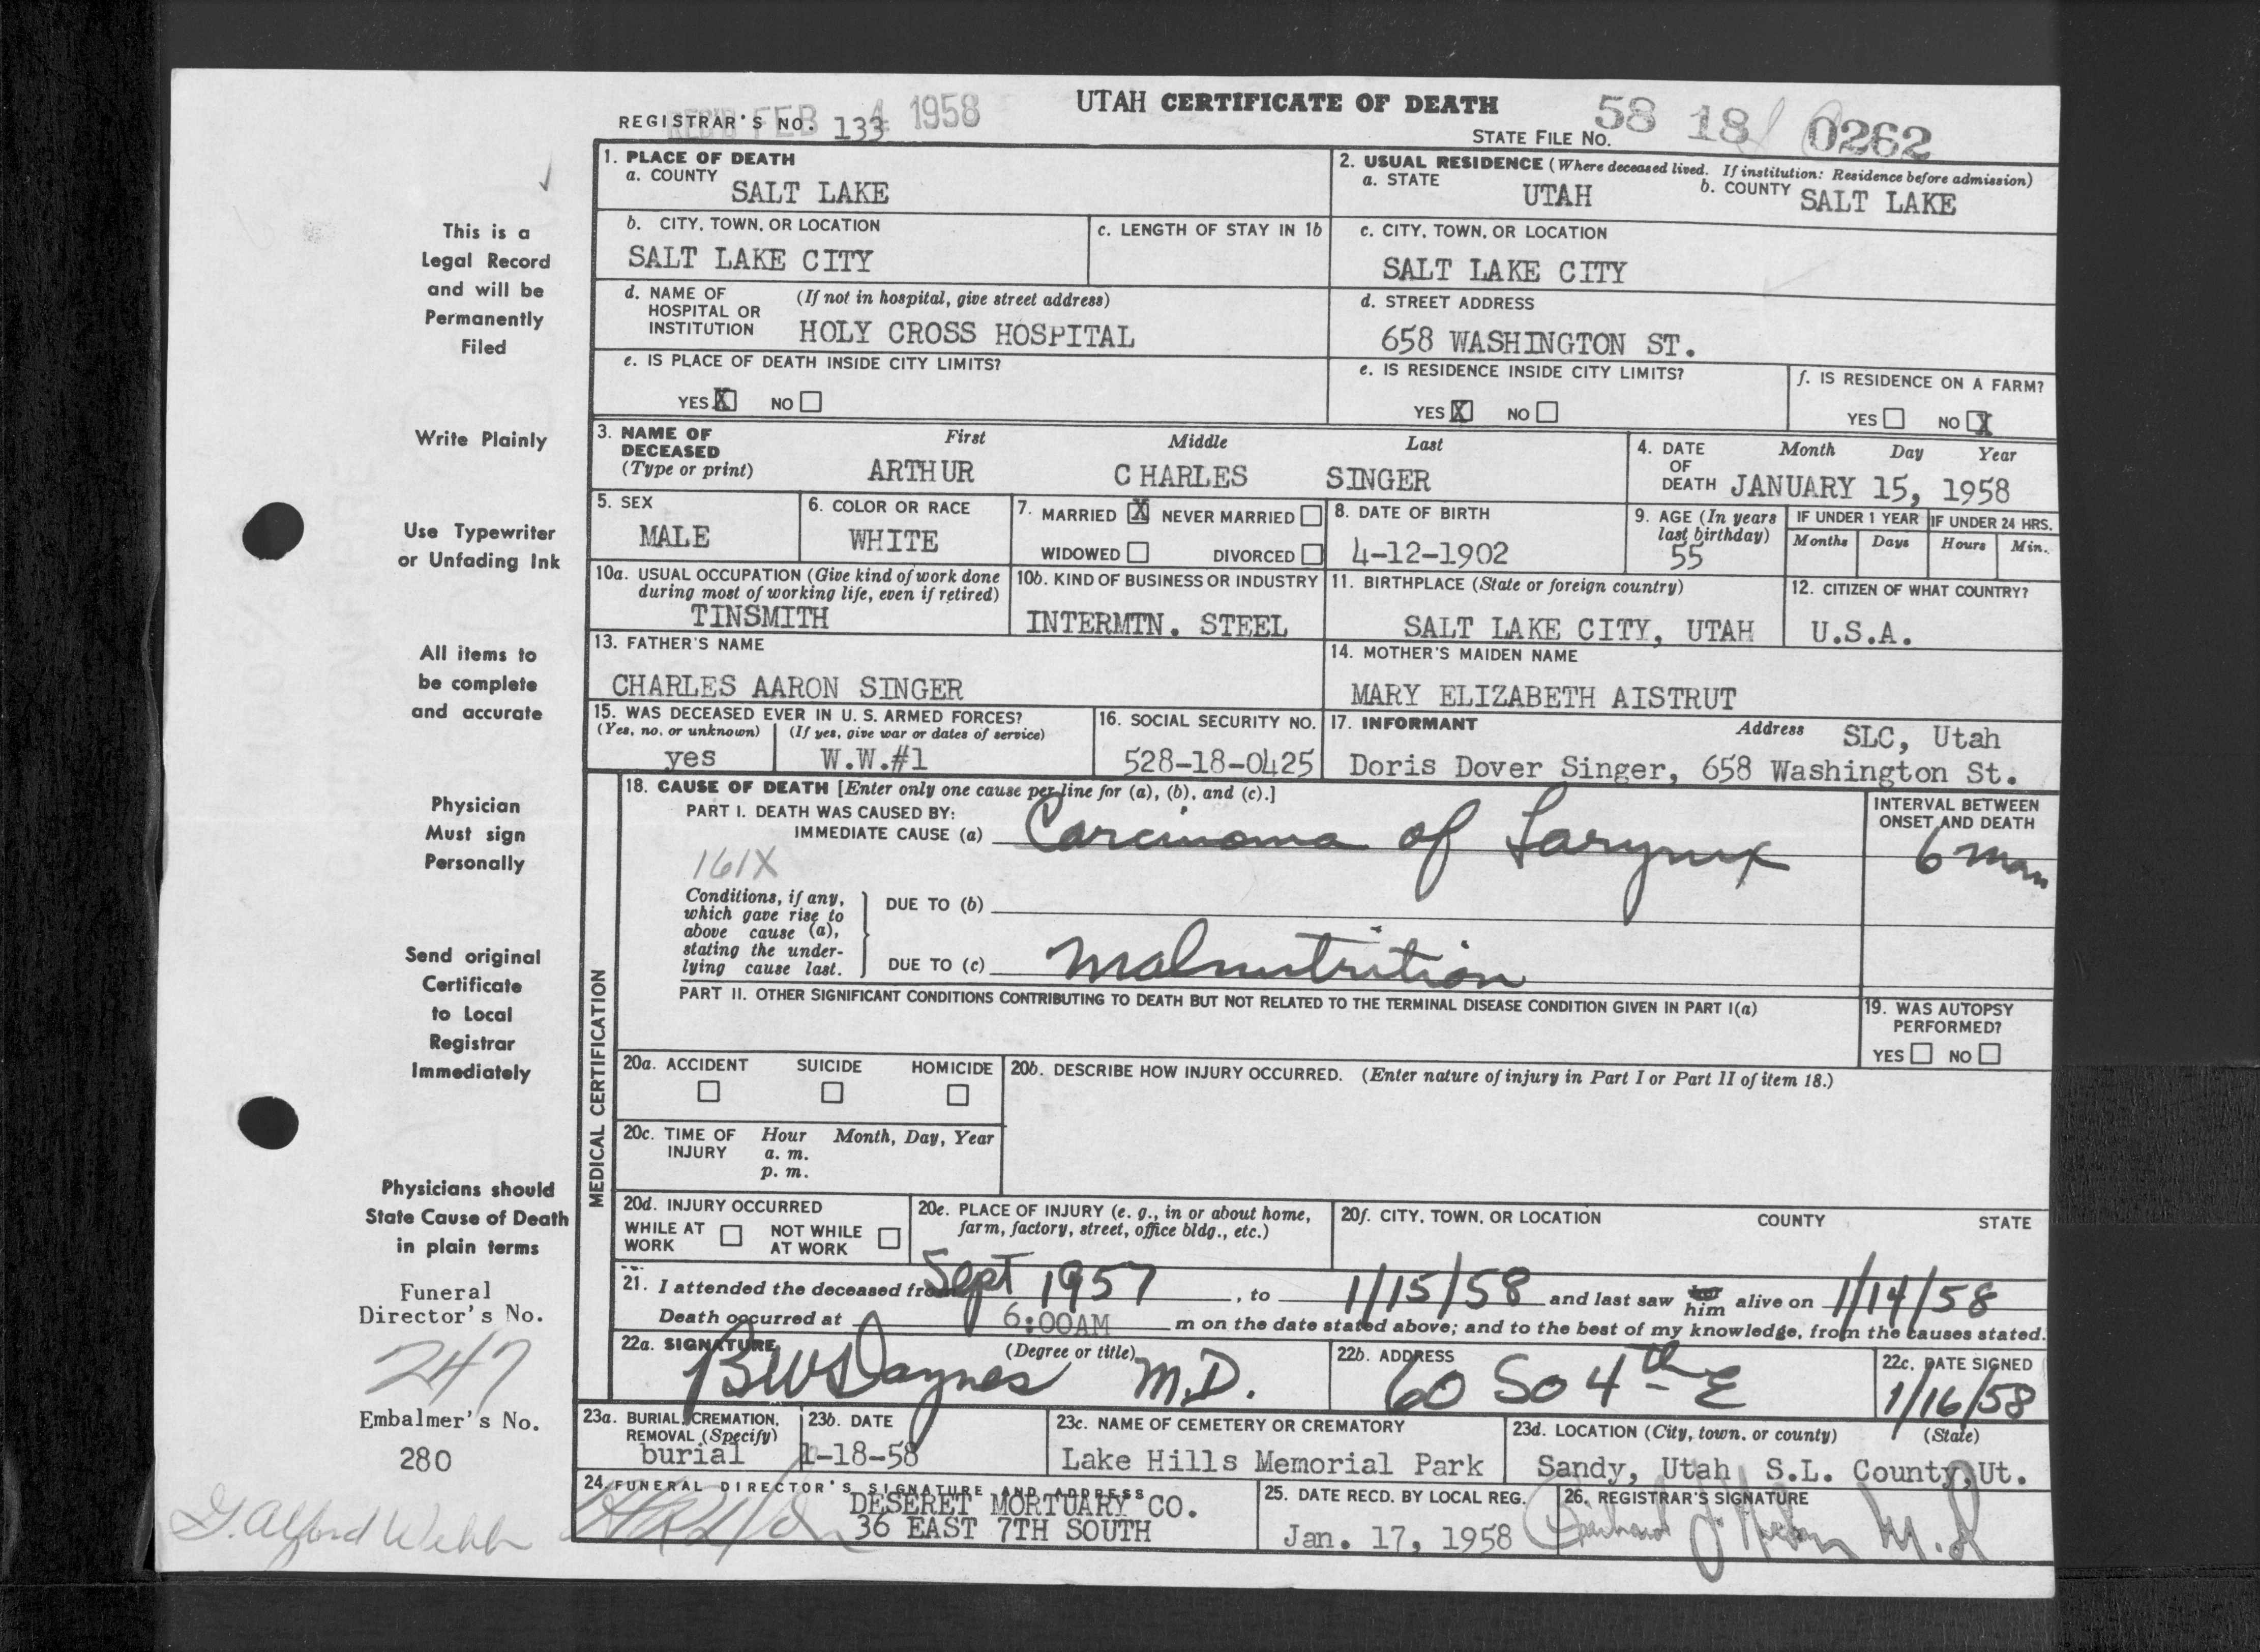 UTAH CERTIFICATE OF DEATH
REC'D FEB 4 1958
REGISTRAR'S NO. 133
STATE FILE NO. 58 18 0262
1. PLACE OF DEATH
a. COUNTY
SALT LAKE
2. USUAL RESIDENCE (Where deceased lived. If institution: Residence before admission)
a. STATE UTAH b. COUNTY SALT LAKE
b. CITY, TOWN, OR LOCATION
SALT LAKE CITY
c. LENGTH OF STAY IN 1b
c. CITY, TOWN, OR LOCATION
SALT LAKE CITY
d. NAME OF HOSPITAL OR INSTITUTION (If not in hospital, give street address)
HOLY CROSS HOSPITAL
d. STREET ADDRESS
658 WASHINGTON ST.
e. IS PLACE OF DEATH INSIDE CITY LIMITS?
YES X NO
e. IS RESIDENCE INSIDE CITY LIMITS?
YES X NO
f. IS RESIDENCE ON A FARM?
YES NO X
3. NAME OF DECEASED (Type or print)
First Middle Last
ARTHUR CHARLES SINGER
4. DATE OF DEATH Month Day Year
JANUARY 15, 1958
5. SEX
MALE
6. COLOR OR RACE
WHITE
7. MARRIED X NEVER MARRIED
WIDOWED DIVORCED
8. DATE OF BIRTH
4-12-1902
9. AGE (In years last birthday)
55
IF UNDER 1 YEAR
Months Days
IF UNDER 24 HRS.
Hours Min.
10a. USUAL OCCUPATION (Give kind of work done during most of working life, even if retired)
TINSMITH
10b. KIND OF BUSINESS OR INDUSTRY
INTERMTN. STEEL
11. BIRTHPLACE (State or foreign country)
SALT LAKE CITY, UTAH
12. CITIZEN OF WHAT COUNTRY?
U.S.A.
13. FATHER'S NAME
CHARLES AARON SINGER
14. MOTHER'S MAIDEN NAME
MARY ELIZABETH AISTRUT
15. WAS DECEASED EVER IN U. S. ARMED FORCES?
(Yes, no, or unknown) (If yes, give war or dates of service)
yes W.W.#1
16. SOCIAL SECURITY NO.
528-18-0425
17. INFORMANT Address SLC, Utah
Doris Dover Singer, 658 Washington St.
MEDICAL CERTIFICATION
18. CAUSE OF DEATH [Enter only one cause per line for (a), (b), and (c).]
PART I. DEATH WAS CAUSED BY:
IMMEDIATE CAUSE (a) Carcinoma of Larynx
161X
INTERVAL BETWEEN ONSET AND DEATH
6 mon
Conditions, if any, which gave rise to above cause (a), stating the underlying cause last.
DUE TO (b)
DUE TO (c) Malnutrition
PART II. OTHER SIGNIFICANT CONDITIONS CONTRIBUTING TO DEATH BUT NOT RELATED TO THE TERMINAL DISEASE CONDITION GIVEN IN PART I(a)
19. WAS AUTOPSY PERFORMED?
YES NO
20a. ACCIDENT SUICIDE HOMICIDE
20b. DESCRIBE HOW INJURY OCCURRED. (Enter nature of injury in Part I or Part II of item 18.)
20c. TIME OF INJURY Hour Month, Day, Year
a. m.
p. m.
20d. INJURY OCCURRED
WHILE AT WORK NOT WHILE AT WORK
20e. PLACE OF INJURY (e. g., in or about home, farm, factory, street, office bldg., etc.)
20f. CITY, TOWN, OR LOCATION COUNTY STATE
21. I attended the deceased from Sept 1957, to 1/15/58 and last saw her him alive on 1/14/58
Death occurred at 6:00AM m on the date stated above; and to the best of my knowledge, from the causes stated.
22a. SIGNATURE (Degree or title)
BW Daynes M.D.
22b. ADDRESS
60 So 4th E
22c. DATE SIGNED
1/16/58
23a. BURIAL, CREMATION, REMOVAL (Specify)
burial
23b. DATE
1-18-58
23c. NAME OF CEMETERY OR CREMATORY
Lake Hills Memorial Park
23d. LOCATION (City, town, or county) (State)
Sandy, Utah S.L. County, Ut.
24. FUNERAL DIRECTOR'S SIGNATURE AND ADDRESS
DESERET MORTUARY CO.
36 EAST 7TH SOUTH
25. DATE RECD. BY LOCAL REG.
Jan. 17, 1958
26. REGISTRAR'S SIGNATURE
M.D
This is a
Legal Record
and will be
Permanently
Filed
Write Plainly
Use Typewriter
or Unfading Ink
All items to
be complete
and accurate
Physician
Must sign
Personally
Send original
Certificate
to Local
Registrar
Immediately
Physicians should
State Cause of Death
in plain terms
Funeral
Director's No.
247
Embalmer's No.
280
G. Alford Webb